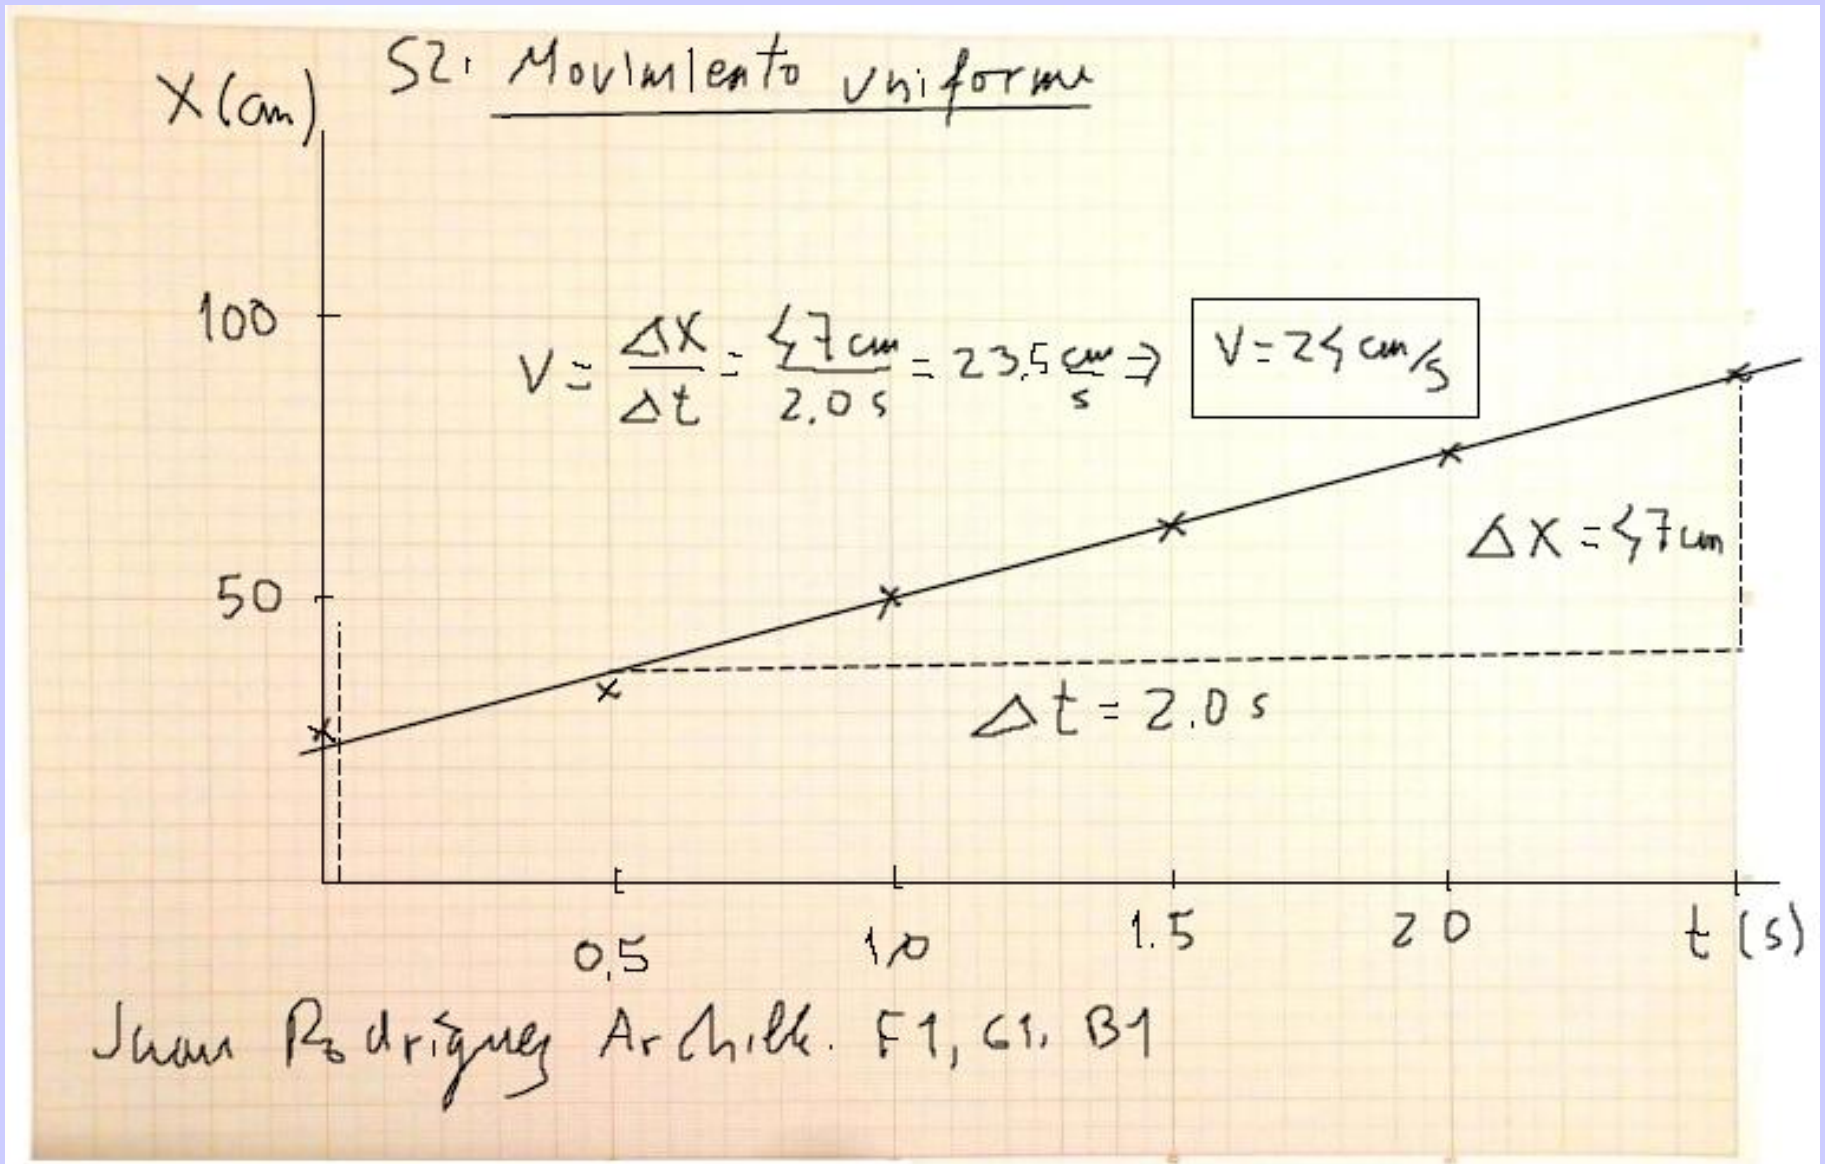 S2. Movimiento uniforme
X (cm)
100
V = ΔX/Δt = 47 cm/2.0 s = 23.5 cm/s ⇒ V = 24 cm/s
ΔX = 47 cm
50
Δt = 2.0 s
0,5 1,0 1.5 20 t (s)
Juan Rodríguez Archilla. F1, G1. B1